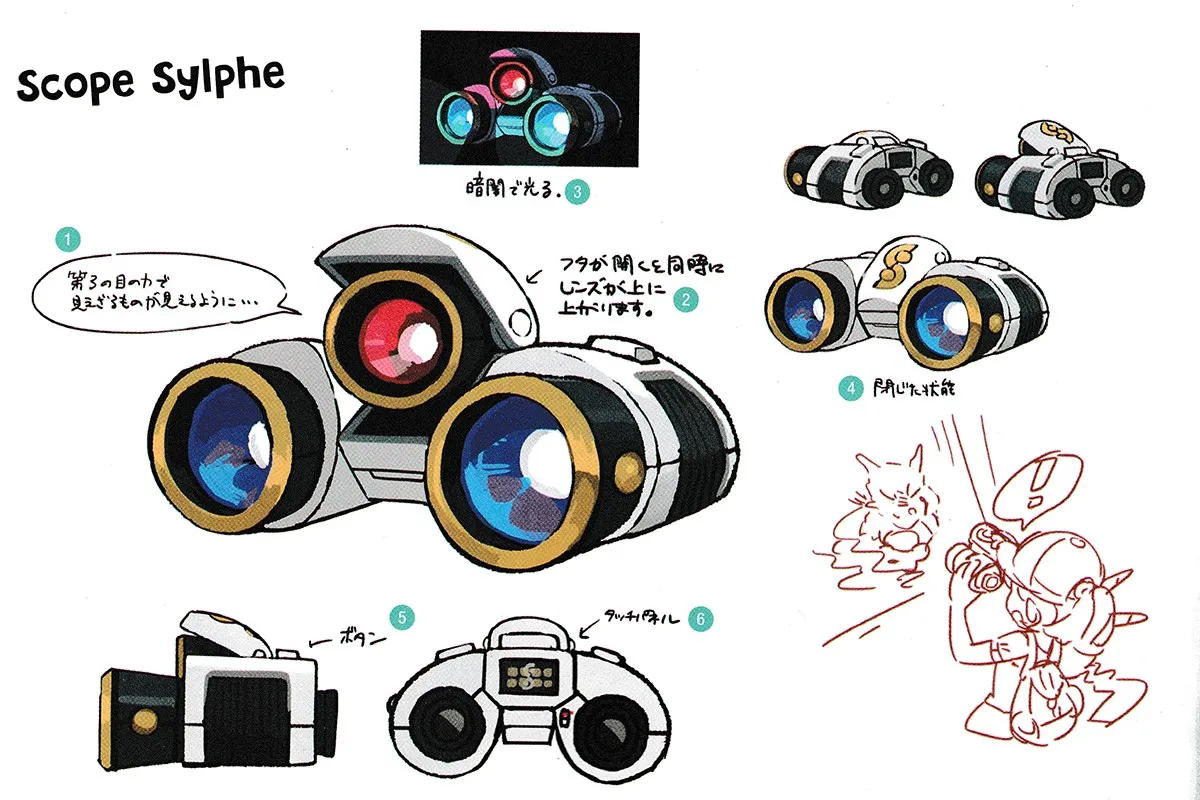 Scope Sylphe
暗闇で光る。 3
1
第3の目の力で
見えざるものが見えるように…
フタが開くと同時に
レンズが上に
上がります。
2
4 閉じた状態
!!
5
ボタン
タッチパネル 6